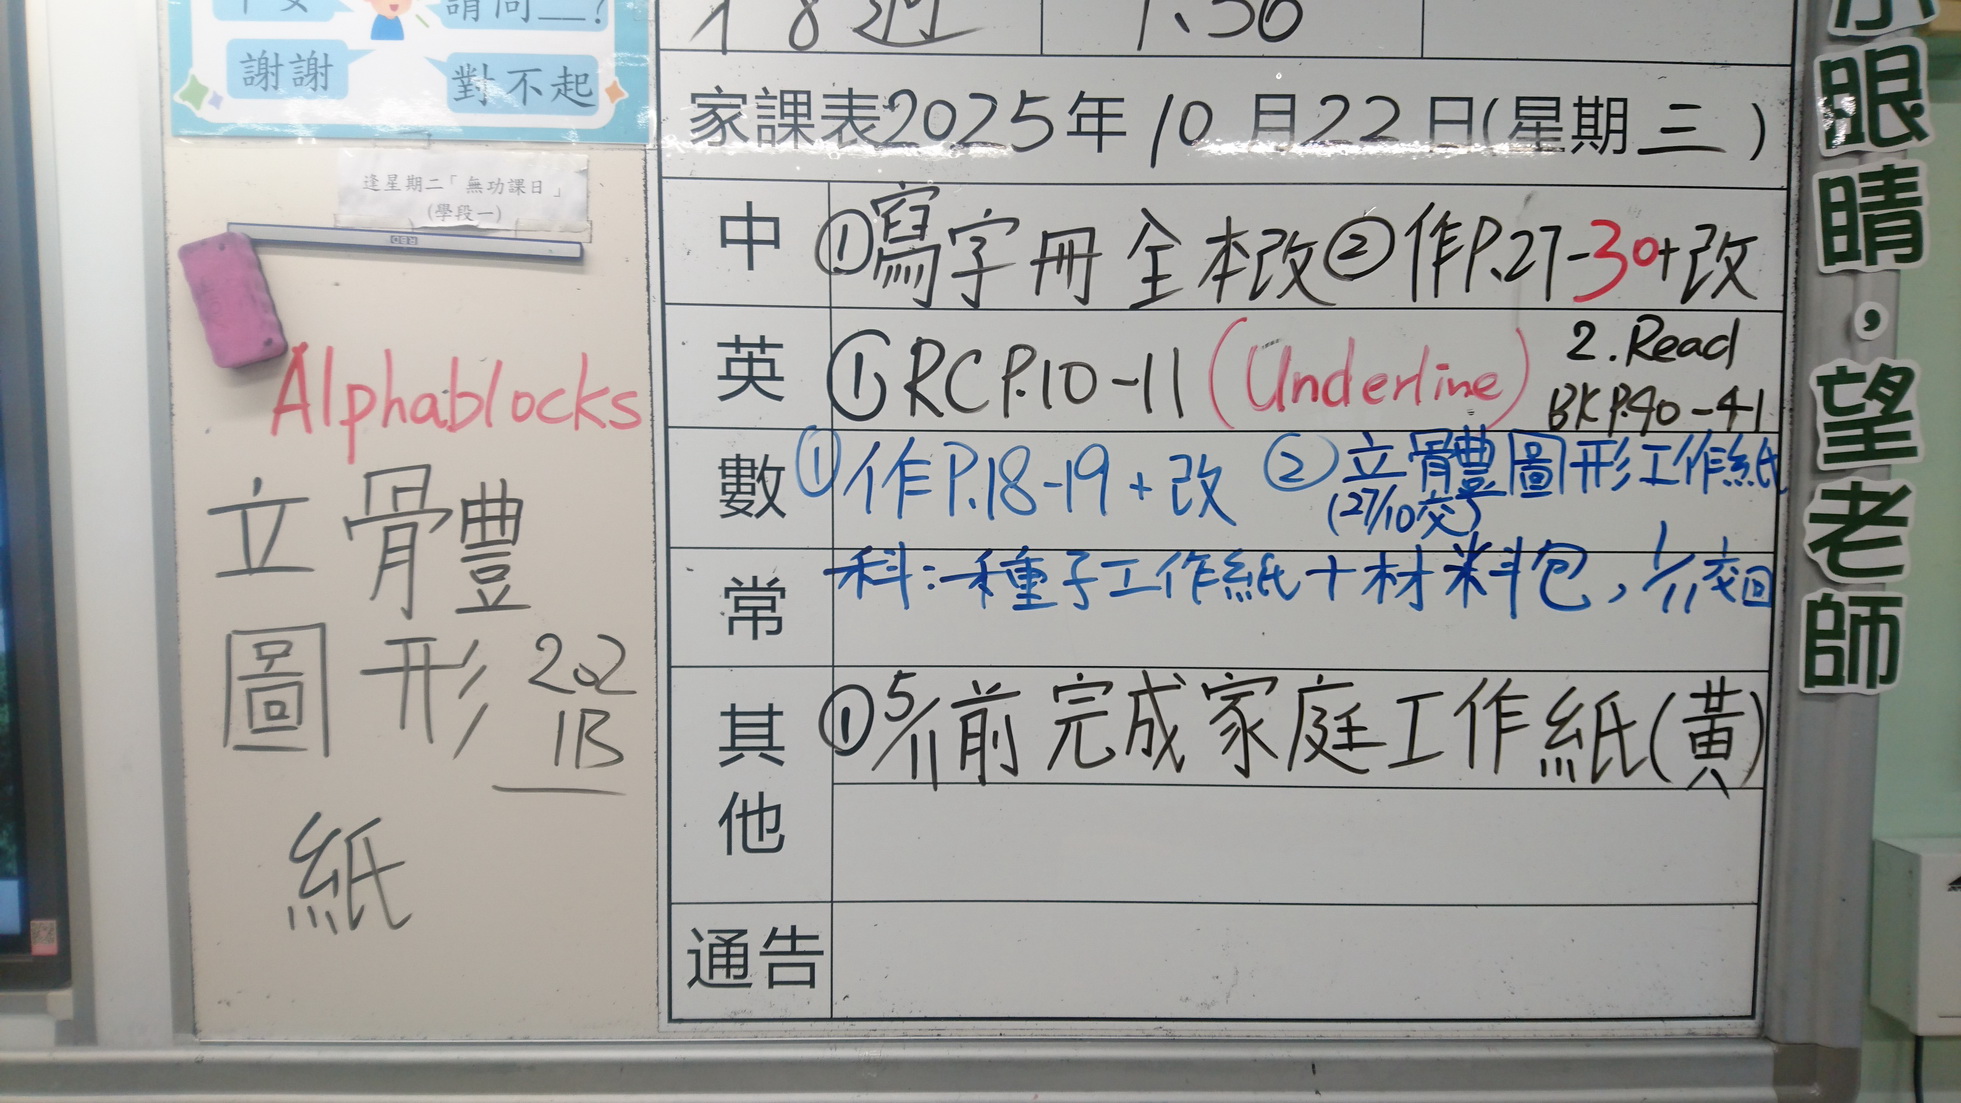 請問__?
謝謝
對不起
逢星期二「無功課日」
(學段一)
Alphablocks
立體
圖形
202
1B
紙
週
1.30
家課表2025年10月22日(星期三)
中
①寫字冊全本改②作P.27-30+改
英
①RC P.10-11 (Underline)
2. Read
BK P.40-41
數
①作P.18-19+改 ②立體圖形工作紙
(27/10交)
常
科:種子工作紙+材料包, 1/11交回
其他
①5/11前完成家庭工作紙(黃)
通告
眼睛,望老師